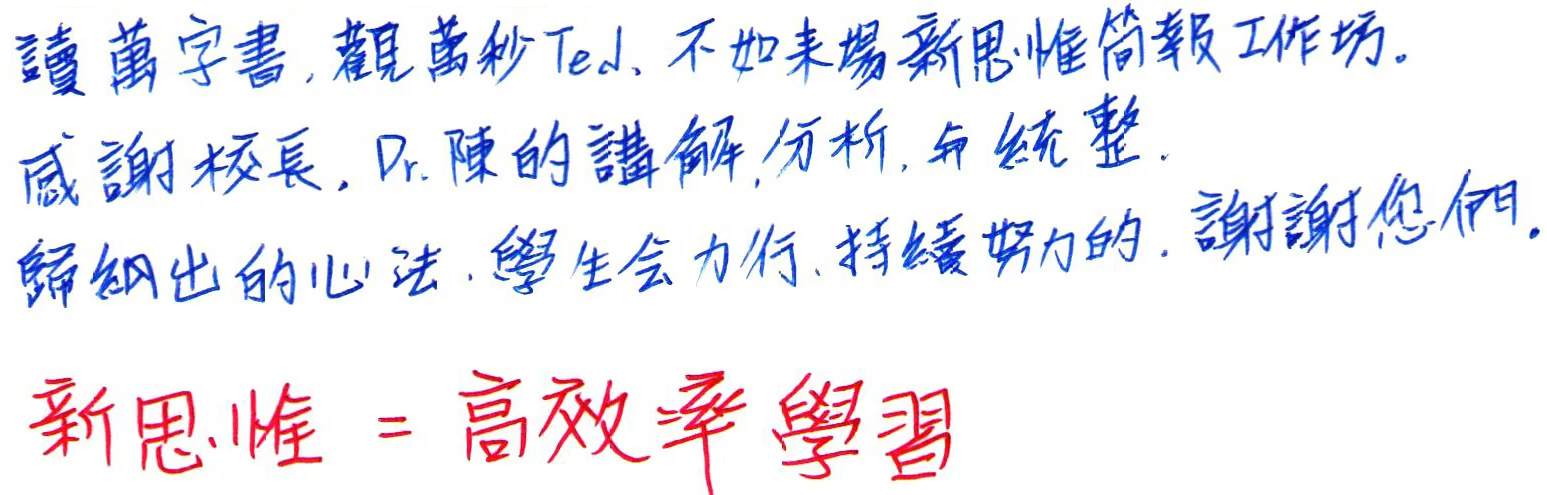 讀萬字書,觀萬秒Ted、不如来場新思惟简報工作坊。
感謝校長,Dr.陳的講解,分析,与統整.
歸納出的心法.學生会力行、持續努力的.謝謝您們。
新思惟=高效率學習